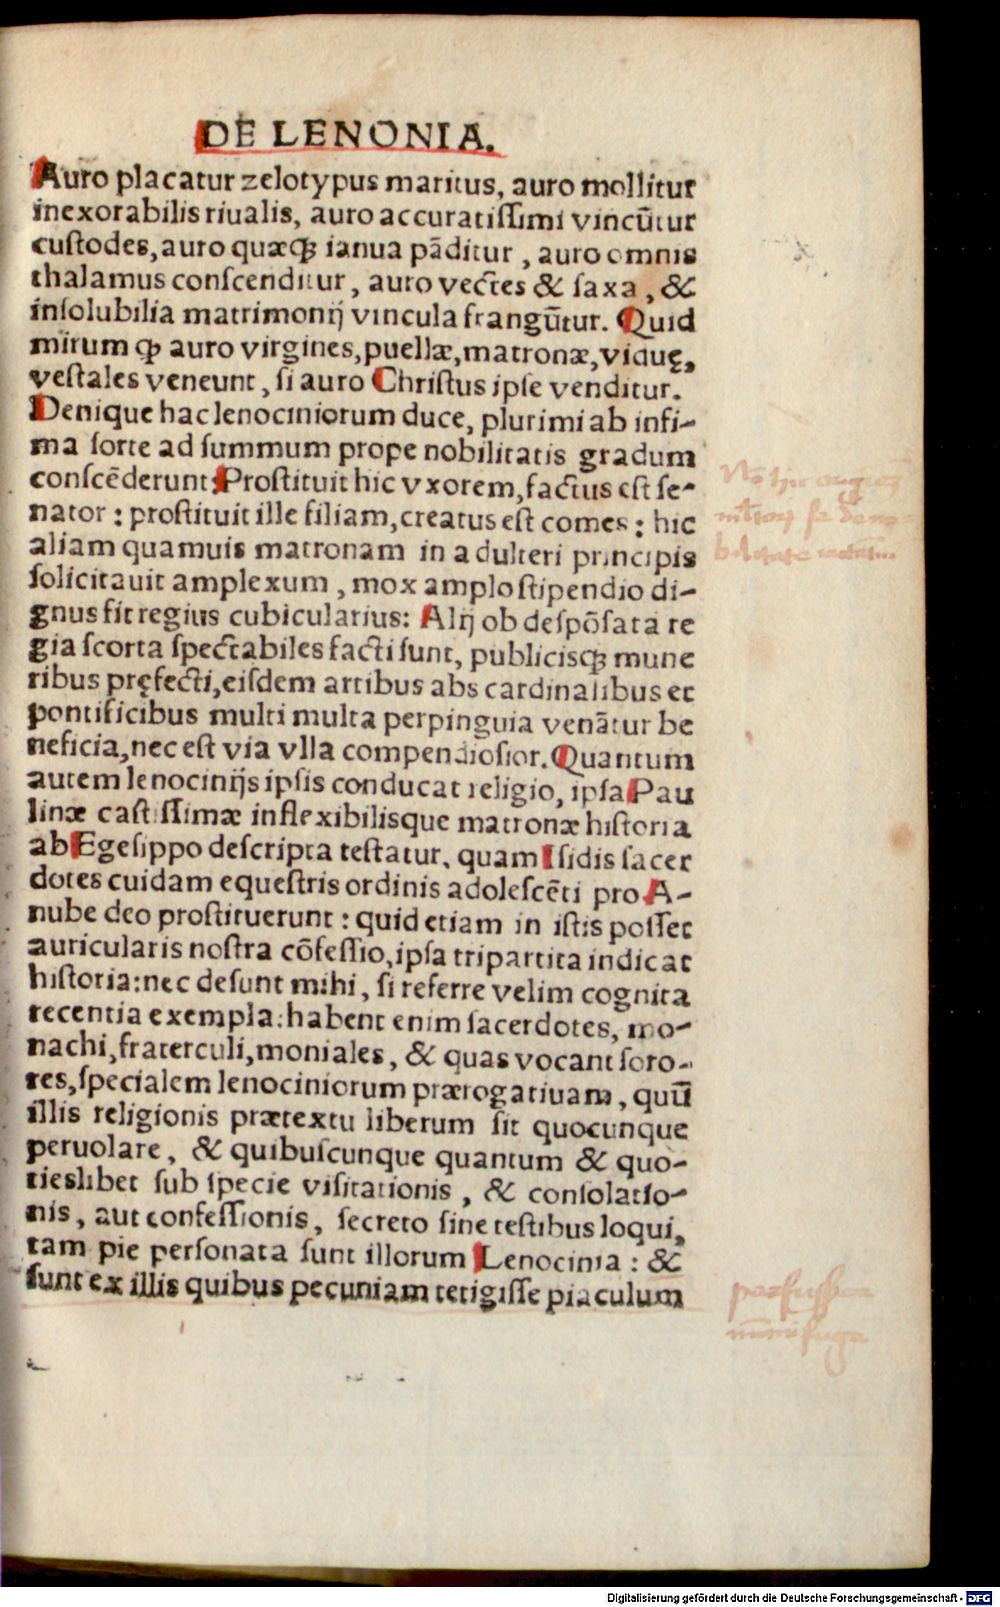 DE LENONIA.
Auro placatur zelotypus maritus, auro mollitur
inexorabilis riualis, auro accuratiſſimi vincūtur
cuſtodes, auro quæqꝫ ianua pāditur, auro omnis
thalamus conſcenditur, auro vectes & ſaxa, &
inſolubilia matrimonij vincula frangūtur. Quid
mirum ꝙ auro virgines, puellæ, matronæ, viduę,
veſtales veneunt, ſi auro Chriſtus ipſe venditur.
Denique hac lenociniorum duce, plurimi ab infi-
ma ſorte ad ſummum prope nobilitatis gradum
conſcēderunt: Proſtituit hic vxorem, factus eſt ſe-
nator: proſtituit ille filiam, creatus eſt comes: hic
aliam quamuis matronam in adulteri principis
ſolicitauit amplexum, mox amplo ſtipendio di-
gnus fit regius cubicularius: Alij ob deſpōſata re
gia ſcorta ſpectabiles facti ſunt, publicisqꝫ mune
ribus pręfecti, eiſdem artibus abs cardinalibus et
pontificibus multi multa perpinguia venātur be
neficia, nec eſt via vlla compendioſior. Quantum
autem lenocinijs ipſis conducat religio, ipſa Pau
linæ caſtiſſimæ inflexibilisque matronæ hiſtoria
ab Egeſippo deſcripta teſtatur, quam Iſidis ſacer
dotes cuidam equeſtris ordinis adoleſcēti pro A-
nube deo proſtituerunt: quid etiam in iſtis poſſet
auricularis noſtra cōfeſſio, ipſa tripartita indicat
hiſtoria: nec deſunt mihi, ſi referre velim cognita
recentia exempla: habent enim ſacerdotes, mo-
nachi, fraterculi, moniales, & quas vocant ſoro-
res, ſpecialem lenociniorum prærogatiuam, quū
illis religionis prætextu liberum ſit quocunque
peruolare, & quibuſcunque quantum & quo-
tieslibet ſub ſpecie viſitationis, & conſolatio-
nis, aut confeſſionis, ſecreto ſine teſtibus loqui,
tam pie perſonata ſunt illorum Lenocinia: &
ſunt ex illis quibus pecuniam tetigiſſe piaculum
Digitalisierung gefördert durch die Deutsche Forschungsgemeinschaft - DFG